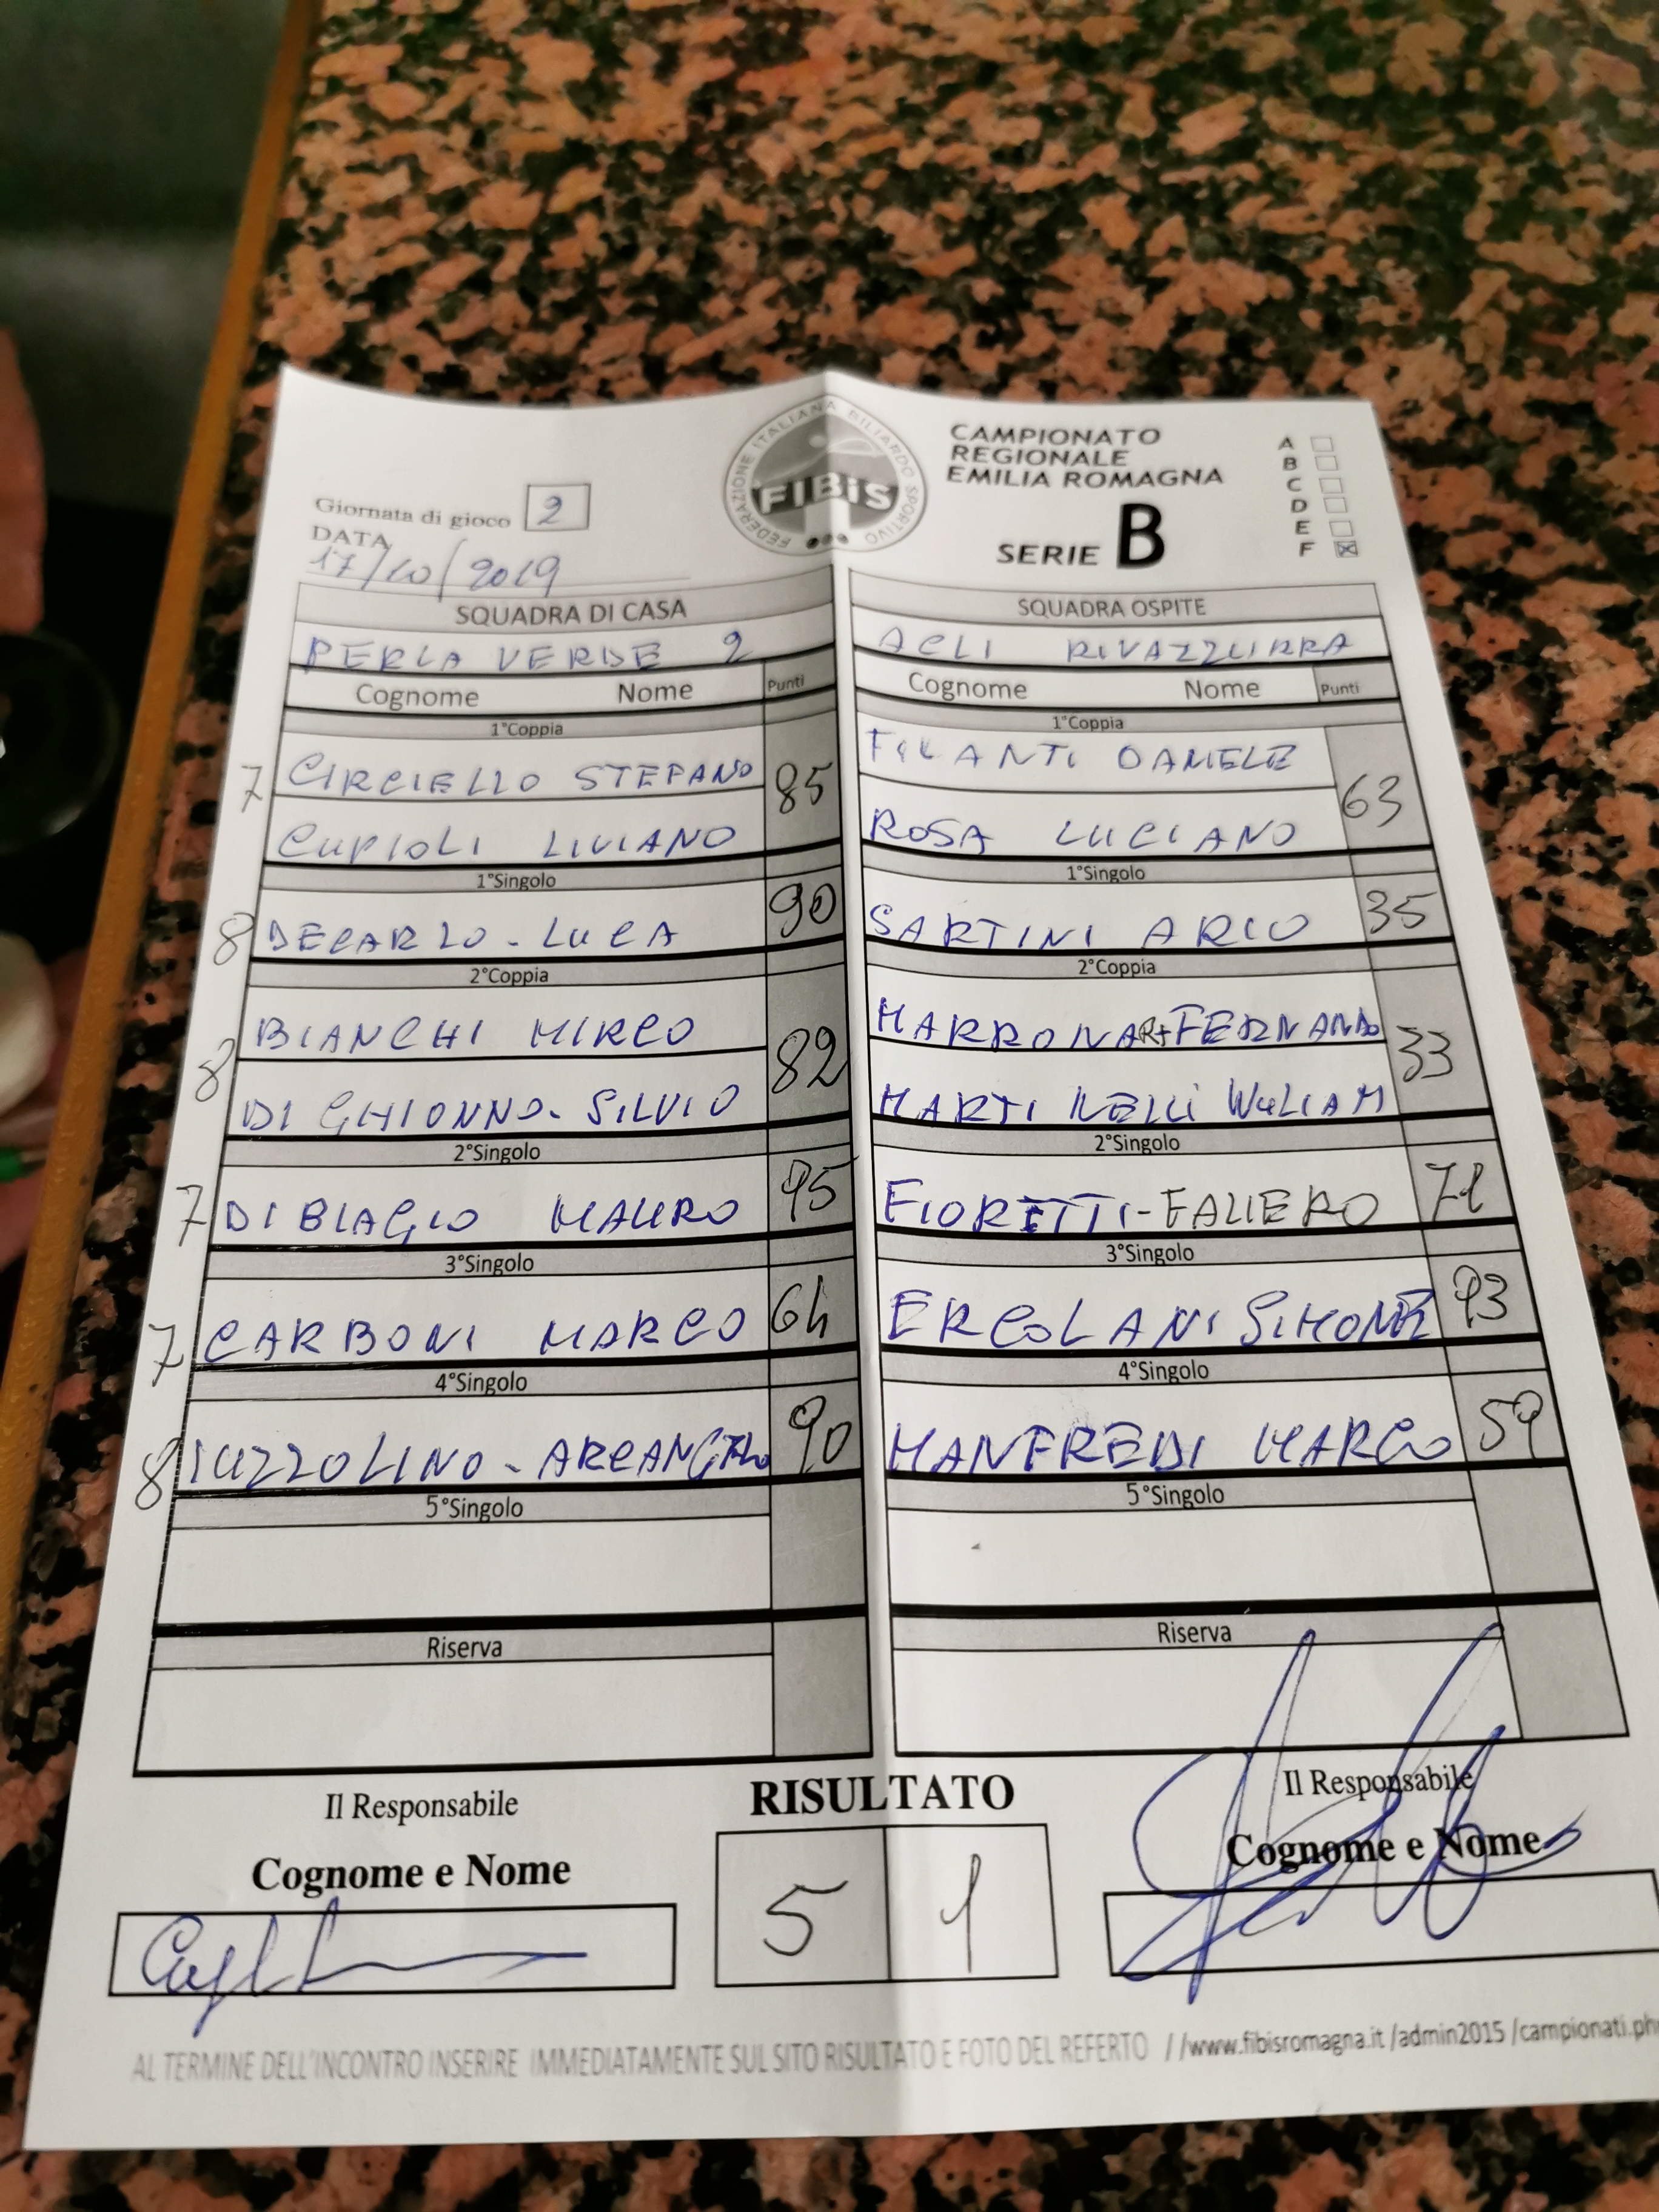 FEDERAZIONE ITALIANA BILIARDO SPORTIVO
FIBiS
CAMPIONATO
REGIONALE
EMILIA ROMAGNA
SERIE B
A
B
C
D
E
F
Giornata di gioco 2
DATA
17/10/2019
SQUADRA DI CASA SQUADRA OSPITE
PERLA VERDE 2 ACLI RIVAZZURRA
Cognome Nome Punti Cognome Nome Punti
1°Coppia 1°Coppia
7 CIRCIELLO STEFANO 85 FILANTI DANIELE 63
CUPIOLI LIVIANO ROSA LUCIANO
1°Singolo 1°Singolo
8 DECARLO - LUCA 90 SARTINI ARIO 35
2°Coppia 2°Coppia
8 BIANCHI MIRCO 82 MARRONARI FERNANDO 33
DI GHIONNO - SILVIO MARTINELLI WILLIAM
2°Singolo 2°Singolo
7 DI BIAGIO MAURO 95 FIORETTI - FALIERO 71
3°Singolo 3°Singolo
7 CARBONI MARCO 64 ERCOLANI SIMONE 93
4°Singolo 4°Singolo
8 IUZZOLINO - ARCANGELO 90 MANFREDI MARCO 59
5°Singolo 5°Singolo
Riserva Riserva
Il Responsabile RISULTATO Il Responsabile
Cognome e Nome 5 1 Cognome e Nome
AL TERMINE DELL'INCONTRO INSERIRE IMMEDIATAMENTE SUL SITO RISULTATO E FOTO DEL REFERTO //www.fibisromagna.it /admin2015 /campionati.ph